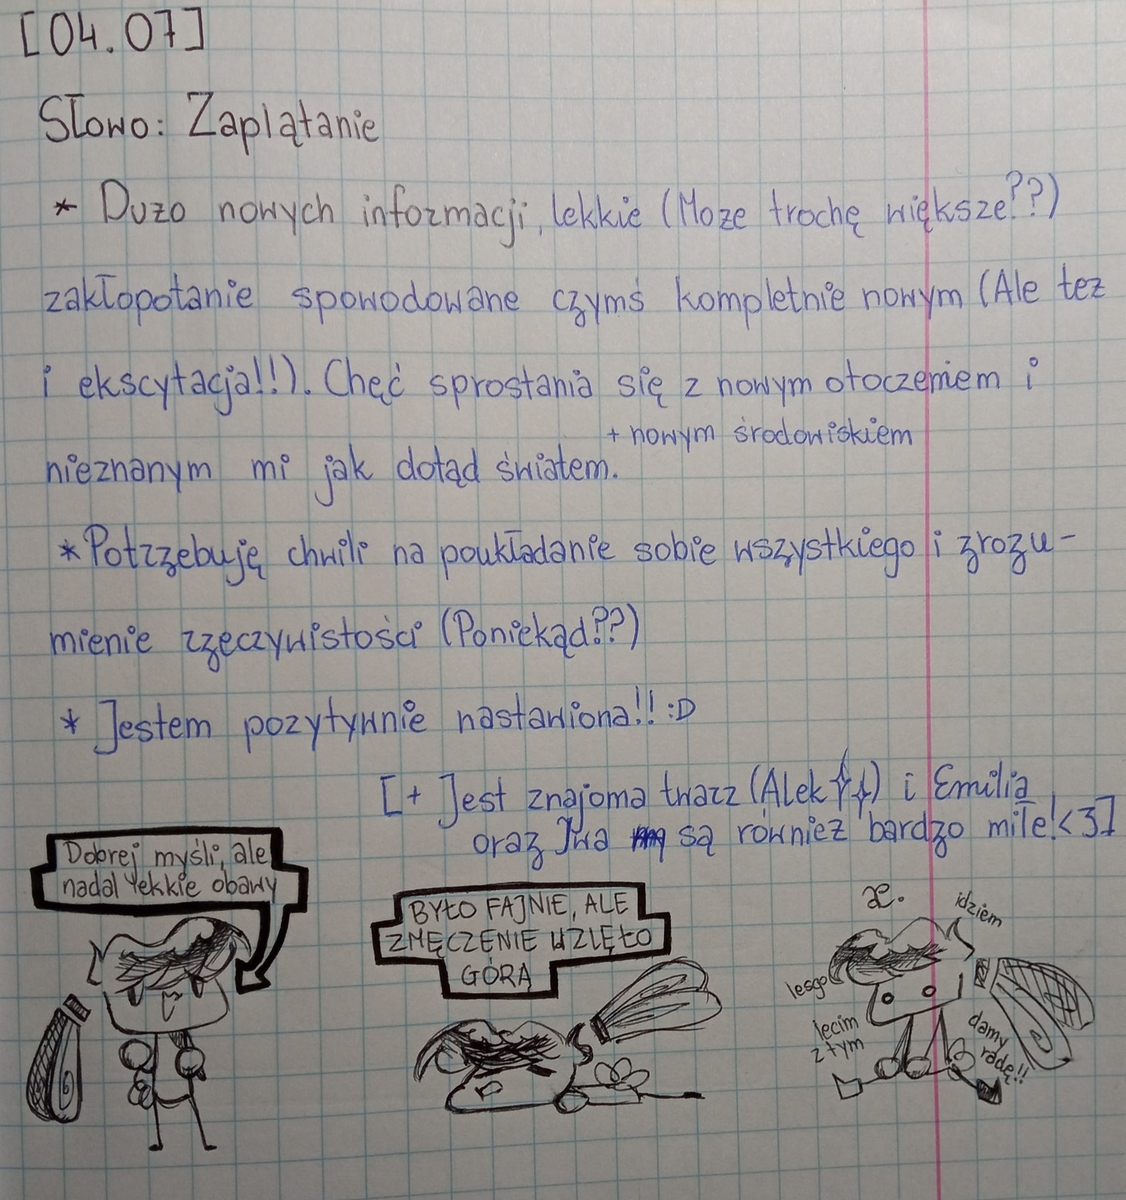 [04.07]
Słowo: Zaplątanie
* Dużo nowych informacji, lekkie (Może trochę większe??)
zakłopotanie spowodowane czymś kompletnie nowym (Ale też
i ekscytacja!!). Chęć sprostania się z nowym otoczeniem i
+ nowym środowiskiem
nieznanym mi jak dotąd światem.
* Potrzebuję chwili na poukładanie sobie wszystkiego i zrozu-
mienie rzeczywistości (Poniekąd??)
* Jestem pozytywnie nastawiona!! :D
[+ Jest znajoma twarz (Alek) i Emilia
oraz Iwa są również bardzo miłe!<3]
Dobrej myśli, ale
nadal lekkie obawy
BYŁO FAJNIE, ALE
ZMĘCZENIE WZIĘŁO
GÓRĄ
æ.
idziem
lesgo
lecim
z tym
damy
radę!!